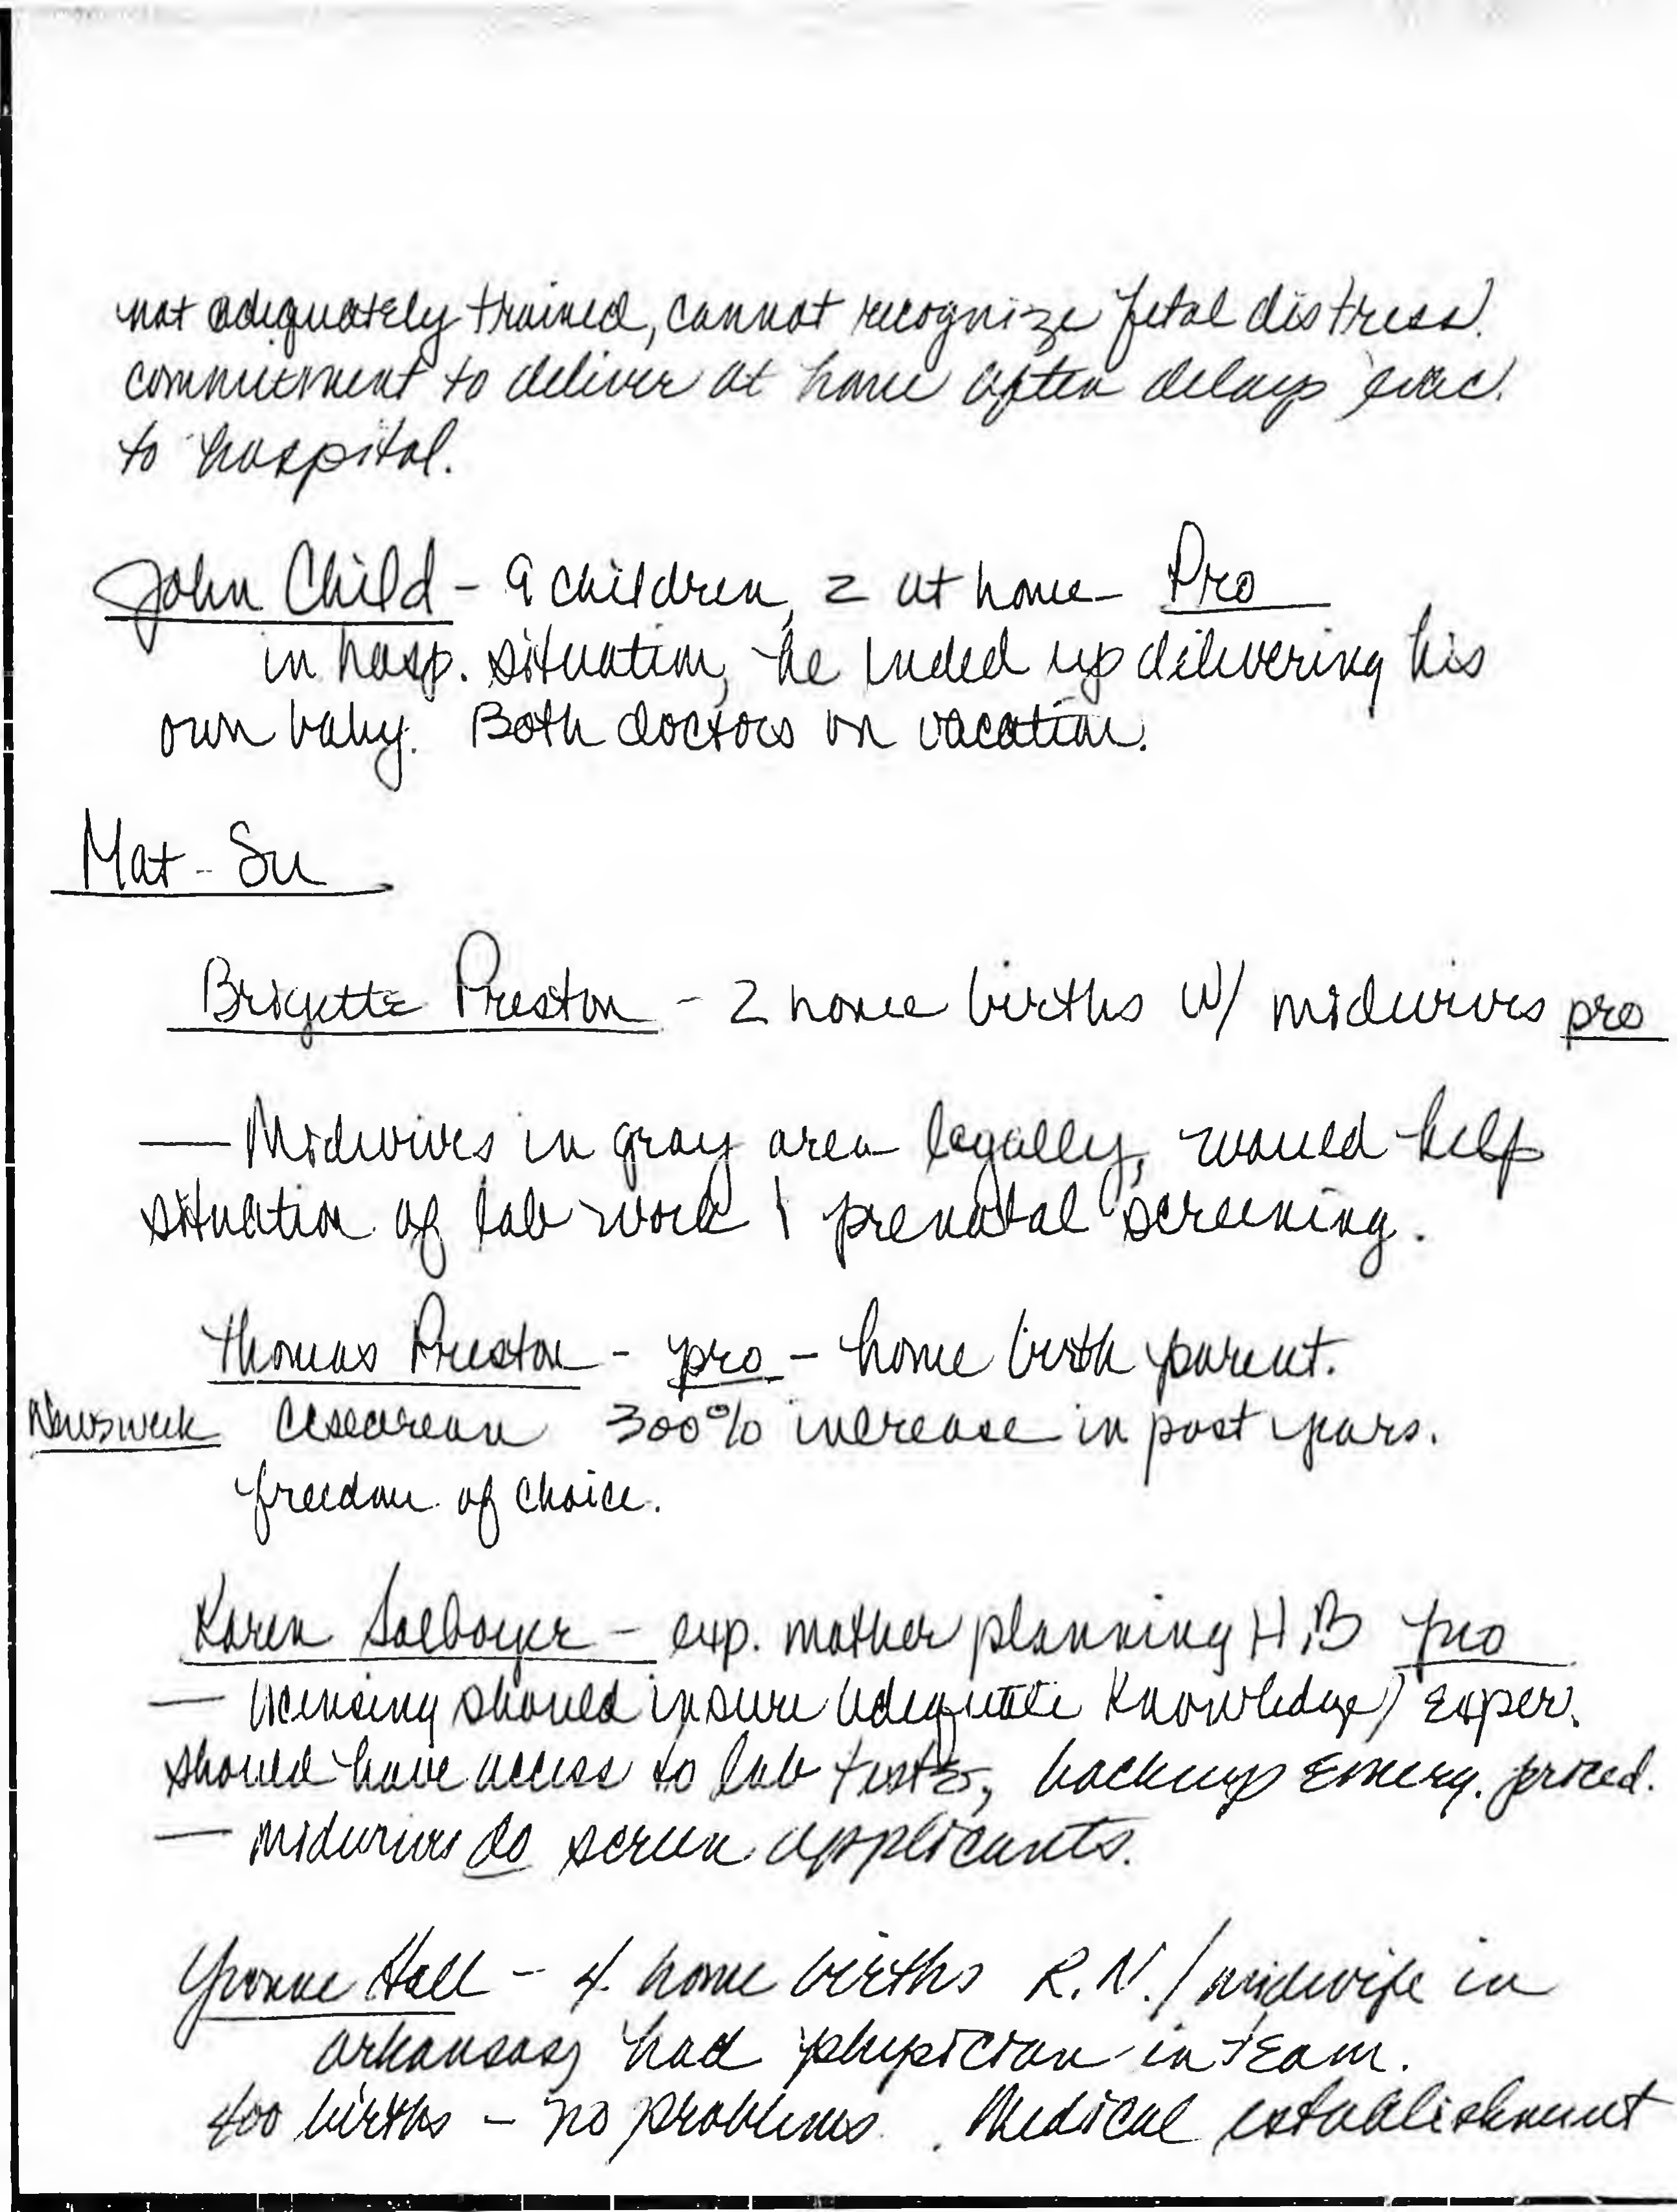 not adequately trained, cannot recognize fetal distress.
commitment to deliver at home often delays evac.
to hospital.
John Child - 9 children, 2 at home - Pro
in hosp. situation, he ended up delivering his
own baby. Both doctors on vacation.
Mat-Su
Brigette Preston - 2 home births w/ midwives pro
— Midwives in gray area legally, would help
situation of lab work & prenatal screening.
Thomas Preston - pro - home birth parent.
Newsweek Cesearean 300% increase in past years.
freedom of choice.
Karen - exp. mother planning H.B pro
— licensing should insure adequate knowledge/exper.
should have access to lab tests, backup emerg. proced.
— midwives do screen applicants.
Yvonne Hall - 4 home births R.N./midwife in
arkansas, had physician in team.
400 births - no problems. Medical establishment